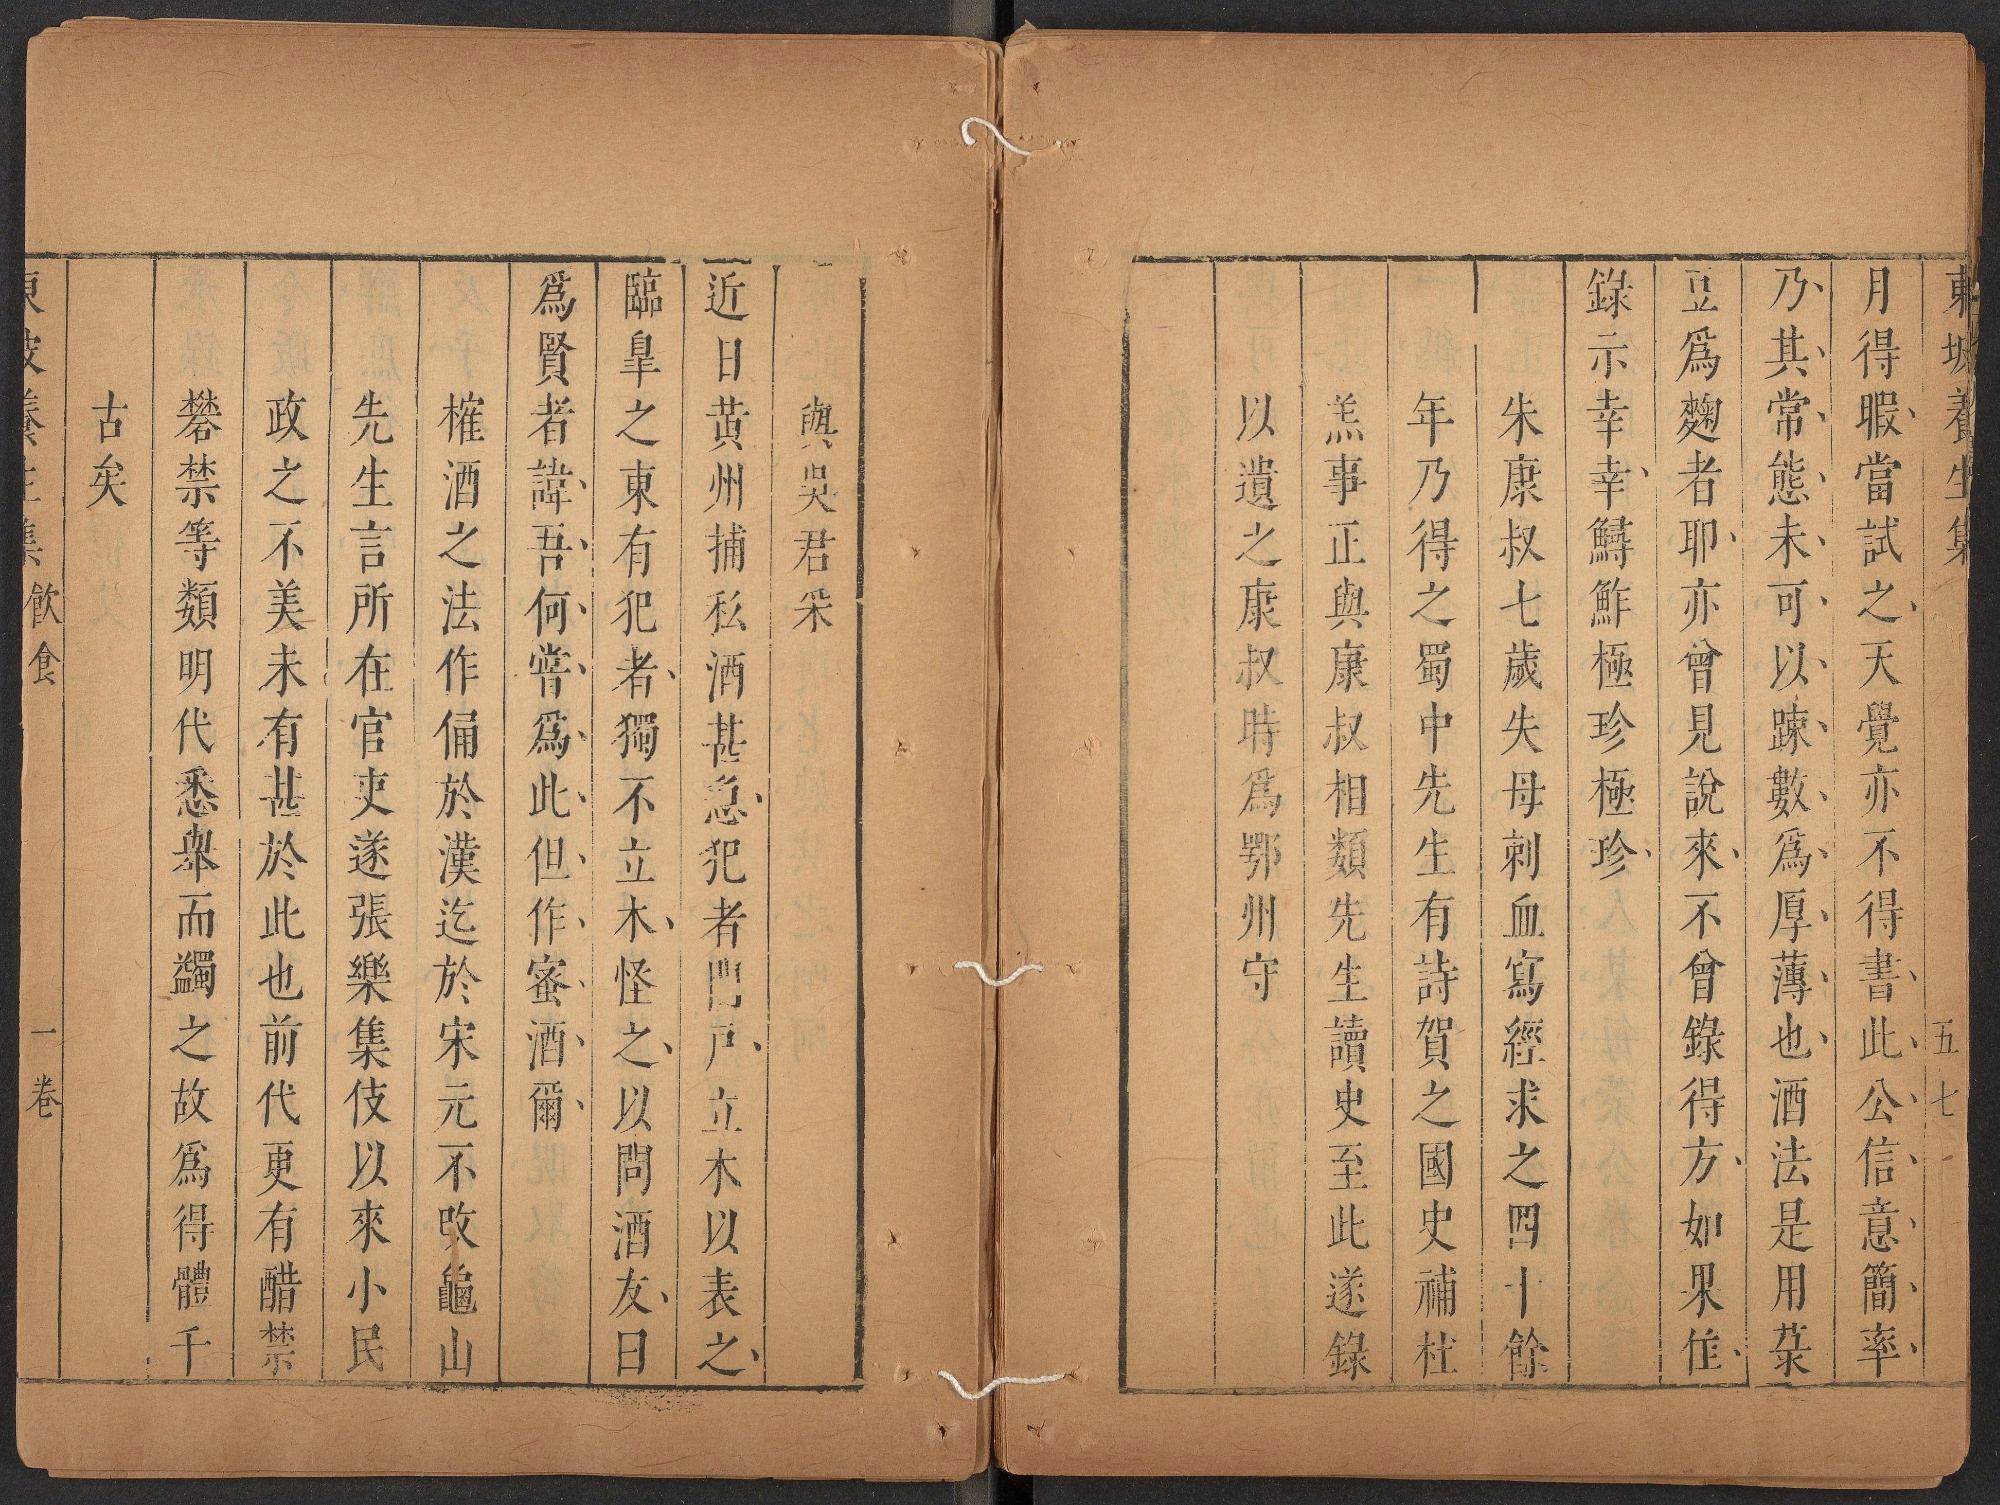 東坡養生集 五七
月得暇當試之天覺亦不得書此公信意簡率
乃其常態未可以踈數爲厚薄也酒法是用菉
豆爲麴者耶亦曾見說來不曾錄得方如果佳
錄示幸幸鱘鮓極珍極珍
朱康叔七歲失母刺血寫經求之四十餘
年乃得之蜀中先生有詩賀之國史補杜
羔事正與康叔相類先生讀史至此遂錄
以遺之康叔時爲鄂州守
與吳君采
近日黄州捕私酒甚急犯者門戶立木以表之
臨臯之東有犯者獨不立木怪之以問酒友曰
爲賢者諱吾何嘗爲此但作蜜酒爾
榷酒之法作俑於漢迄於宋元不改龜山
先生言所在官吏遂張樂集伎以來小民
政之不美未有甚於此也前代更有醋禁
礬禁等類明代悉舉而蠲之故爲得體千
古矣
東坡養生集 飲食 一卷